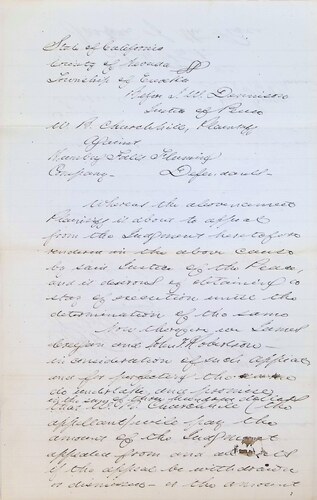 State of California
County of Nevada } SS
Township of Eureka
Before J. W. Dennison
Justice of Peace
W. H. Churchill, Plaintiff
Against
Company - Defendants -
Whereas the above named
Plaintiff is about to appeal
from the Judgment heretofore
rendered in the above cause
by said Justice of the Peace,
and is desirous of obtaining a
stay of execution until the
determination of the same
Now therefore we James
and John Robertson
in consideration of such appeal
and for perfecting the same
do undertake and promise
in the sum of
that W. H. Churchill (the
appellant) will pay the
amount of the Judgment
appealed from and all costs
if the appeal be withdrawn
or dismissed - or the amount